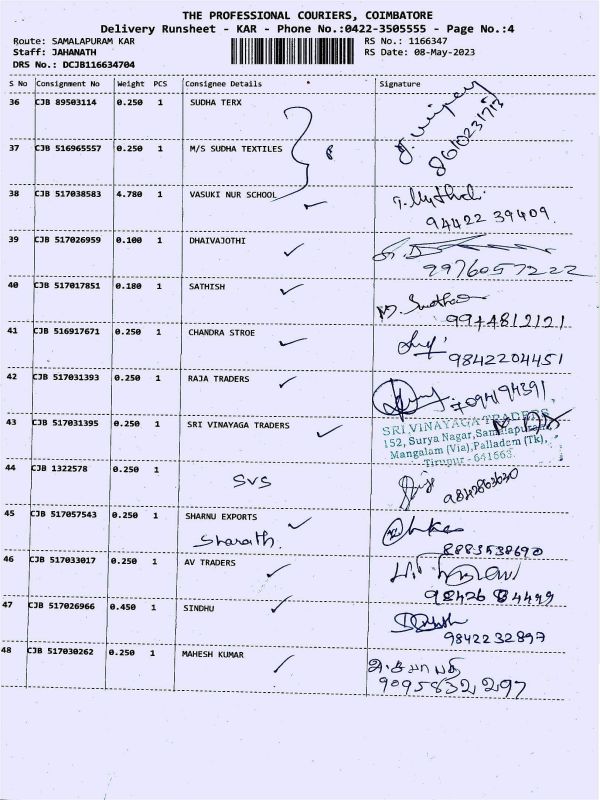 THE PROFESSIONAL COURIERS, COIMBATORE
Delivery Runsheet - KAR - Phone No.:0422-3505555 - Page No.:4
Route: SAMALAPURAM KAR RS No.: 1166347
Staff: JAHANATH RS Date: 08-May-2023
DRS No.: DCJB116634704
S No Consignment No Weight PCS Consignee Details Signature
36 CJB 89503114 0.250 1 SUDHA TERX
8610231713
37 CJB 516965557 0.250 1 M/S SUDHA TEXTILES
38 CJB 517038583 4.780 1 VASUKI NUR SCHOOL
94422 39409
39 CJB 517026959 0.100 1 DHAIVAJOTHI
9976057222
40 CJB 517017851 0.180 1 SATHISH
9944812121
41 CJB 516917671 0.250 1 CHANDRA STROE
9842204451
42 CJB 517031393 0.250 1 RAJA TRADERS
7094194391
43 CJB 517031395 0.250 1 SRI VINAYAGA TRADERS
SRI VINAYAGA TRADERS
152, Surya Nagar, Samalapuram,
Mangalam (Via), Palladam (Tk),
Tirupur - 641663.
44 CJB 1322578 0.250 1
SVS
9842863630
45 CJB 517057543 0.250 1 SHARNU EXPORTS
Sharath.
8883538690
46 CJB 517033017 0.250 1 AV TRADERS
98426 84499
47 CJB 517026966 0.450 1 SINDHU
9842232897
48 CJB 517030262 0.250 1 MAHESH KUMAR
9095832297